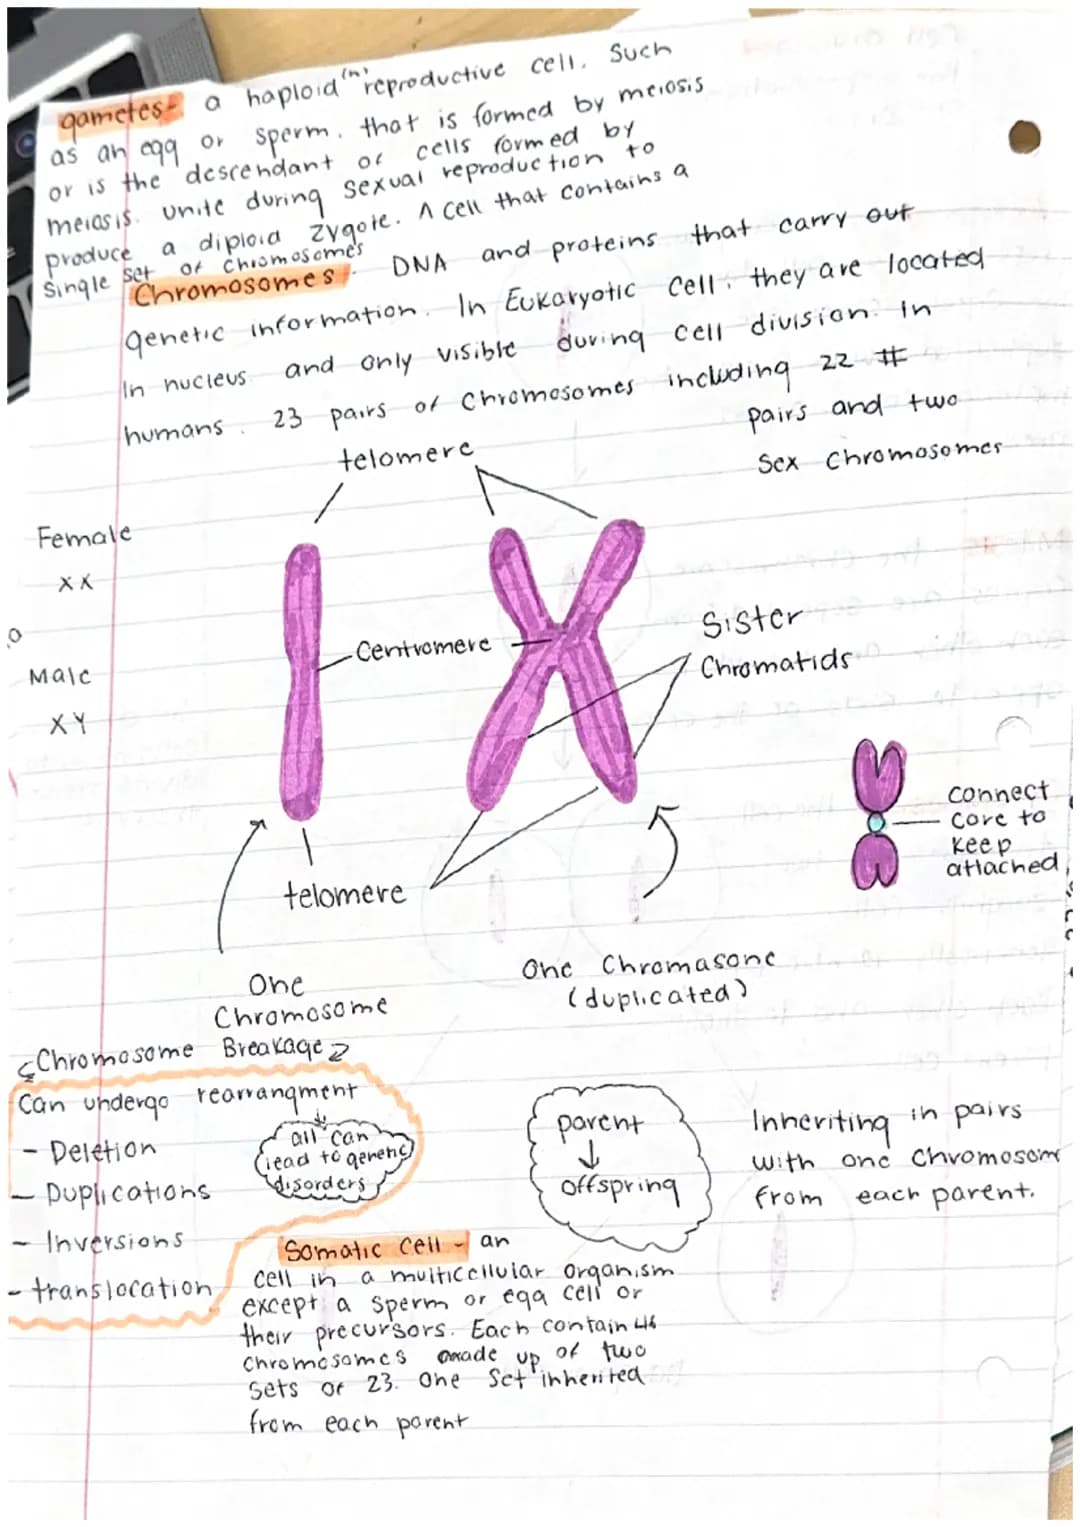 gametes- a haploid (n) reproductive cell. Such
as an egg or sperm. that is formed by meiosis
or is the descendant of cells formed by
meiosis. unite during sexual reproduction to
produce a diploid zygote. A cell that contains a
single set of chromosomes
Chromosomes. DNA and proteins that carry out
genetic information. In Eukaryotic Cell, they are located
in nucleus and only visible during cell division. In
humans. 23 pairs of Chromosomes including 22 #
pairs and two
Sex Chromosomes
telomere
Female
XX
Male
XY
Centromere
Sister
Chromatids
connect
core to
keep
attached,
telomere
One
Chromosome
One Chromasone
(duplicated)
Chromosome Breakage
Can undergo rearrangment
- Deletion
- Duplications
- Inversions
- translocation
all can
lead to genetic
disorders
parent
↓
offspring
Inheriting in pairs
with one chromosom
from each parent.
Somatic cell - an
cell in a multicellular organism
except a sperm or egg cell or
their precursors. Each contain 46
chromosomes made up of two
sets of 23. One set inherited
from each parent